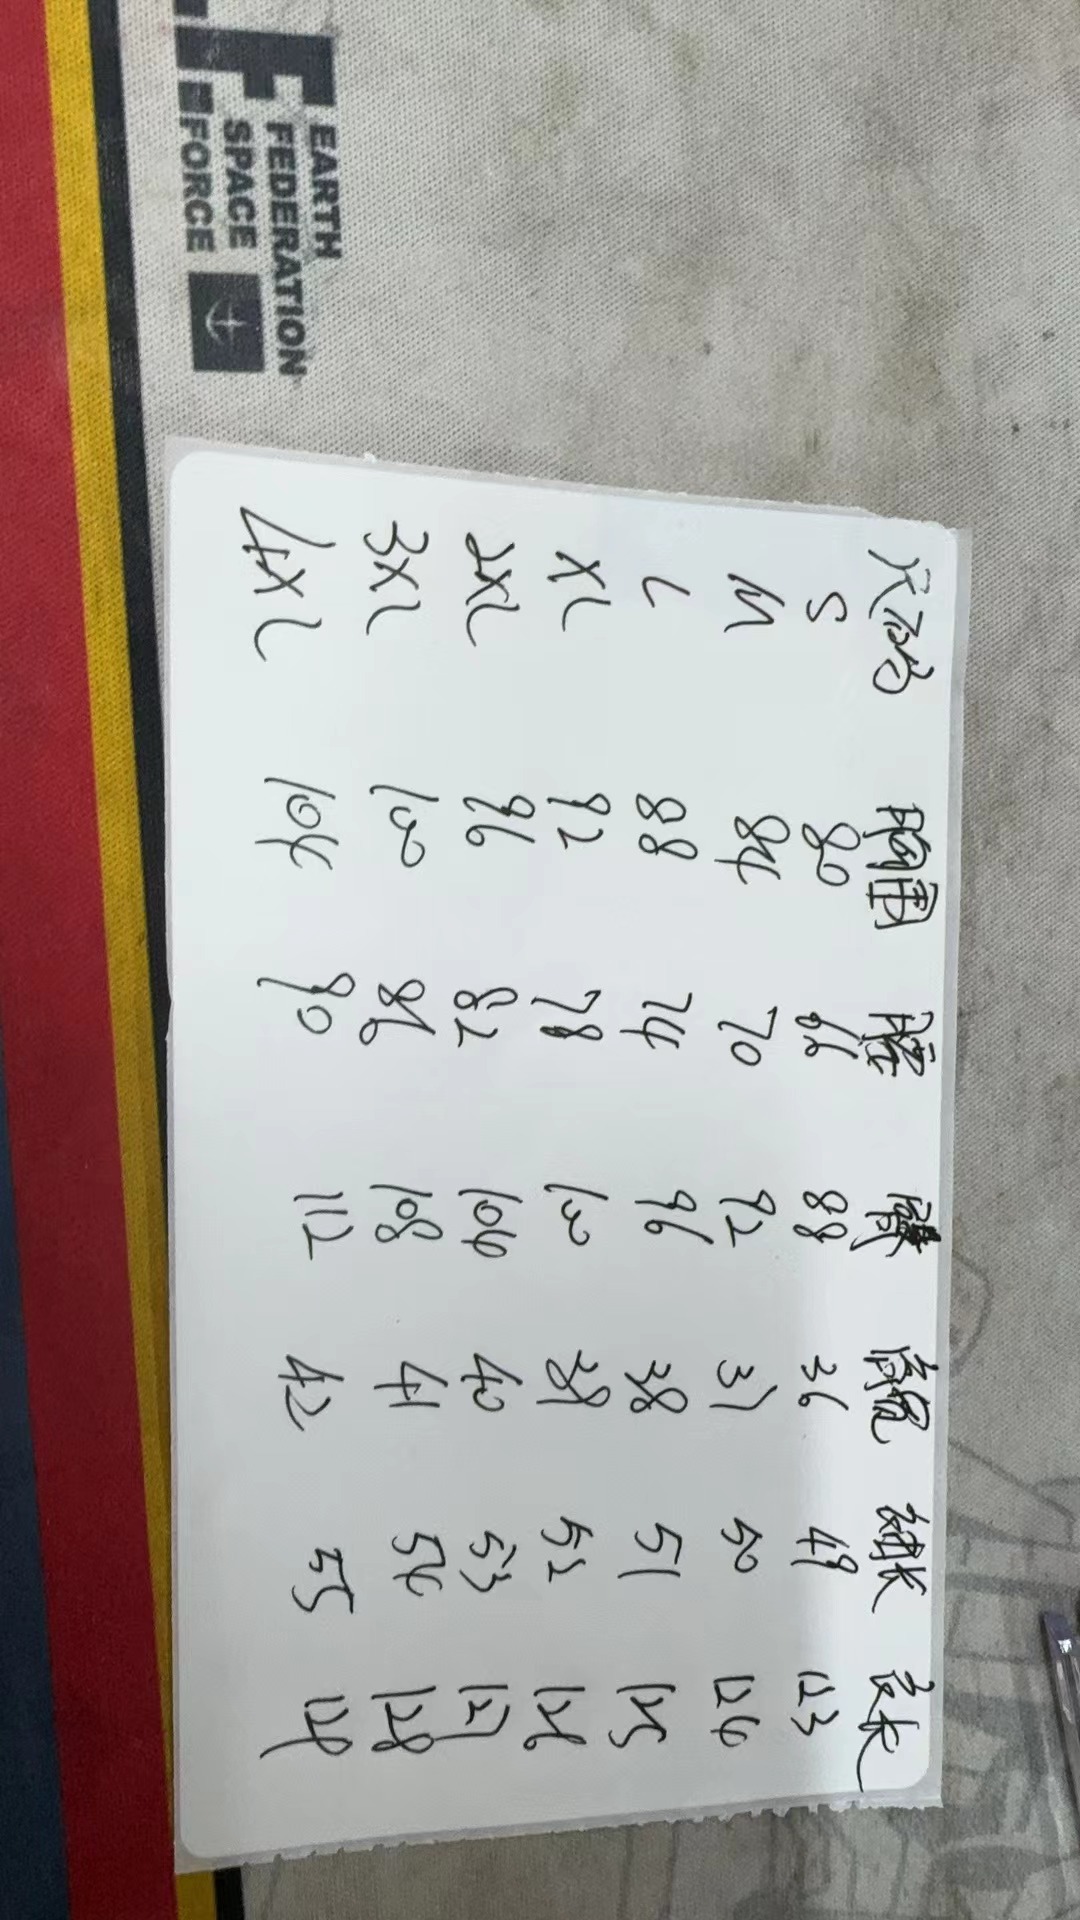 EARTH
FEDERATION
SPACE
FORCE
尺码 胸围 腰 臀 肩宽 袖长 衣长
S 80 66 88 36 49 123
M 84 70 92 37 50 124
L 88 74 96 38 51 125
XL 92 78 100 39 52 126
2XL 96 82 104 40 53 127
3XL 100 86 108 41 54 128
4XL 104 90 112 42 55 129